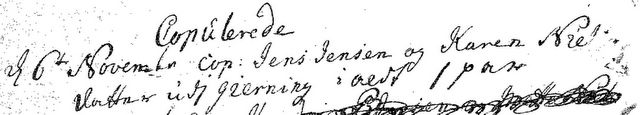 Copulerede
d 6te Novembr cop: Jens Jensen og Karen Niels
datter udj gierning i aedt 1 par